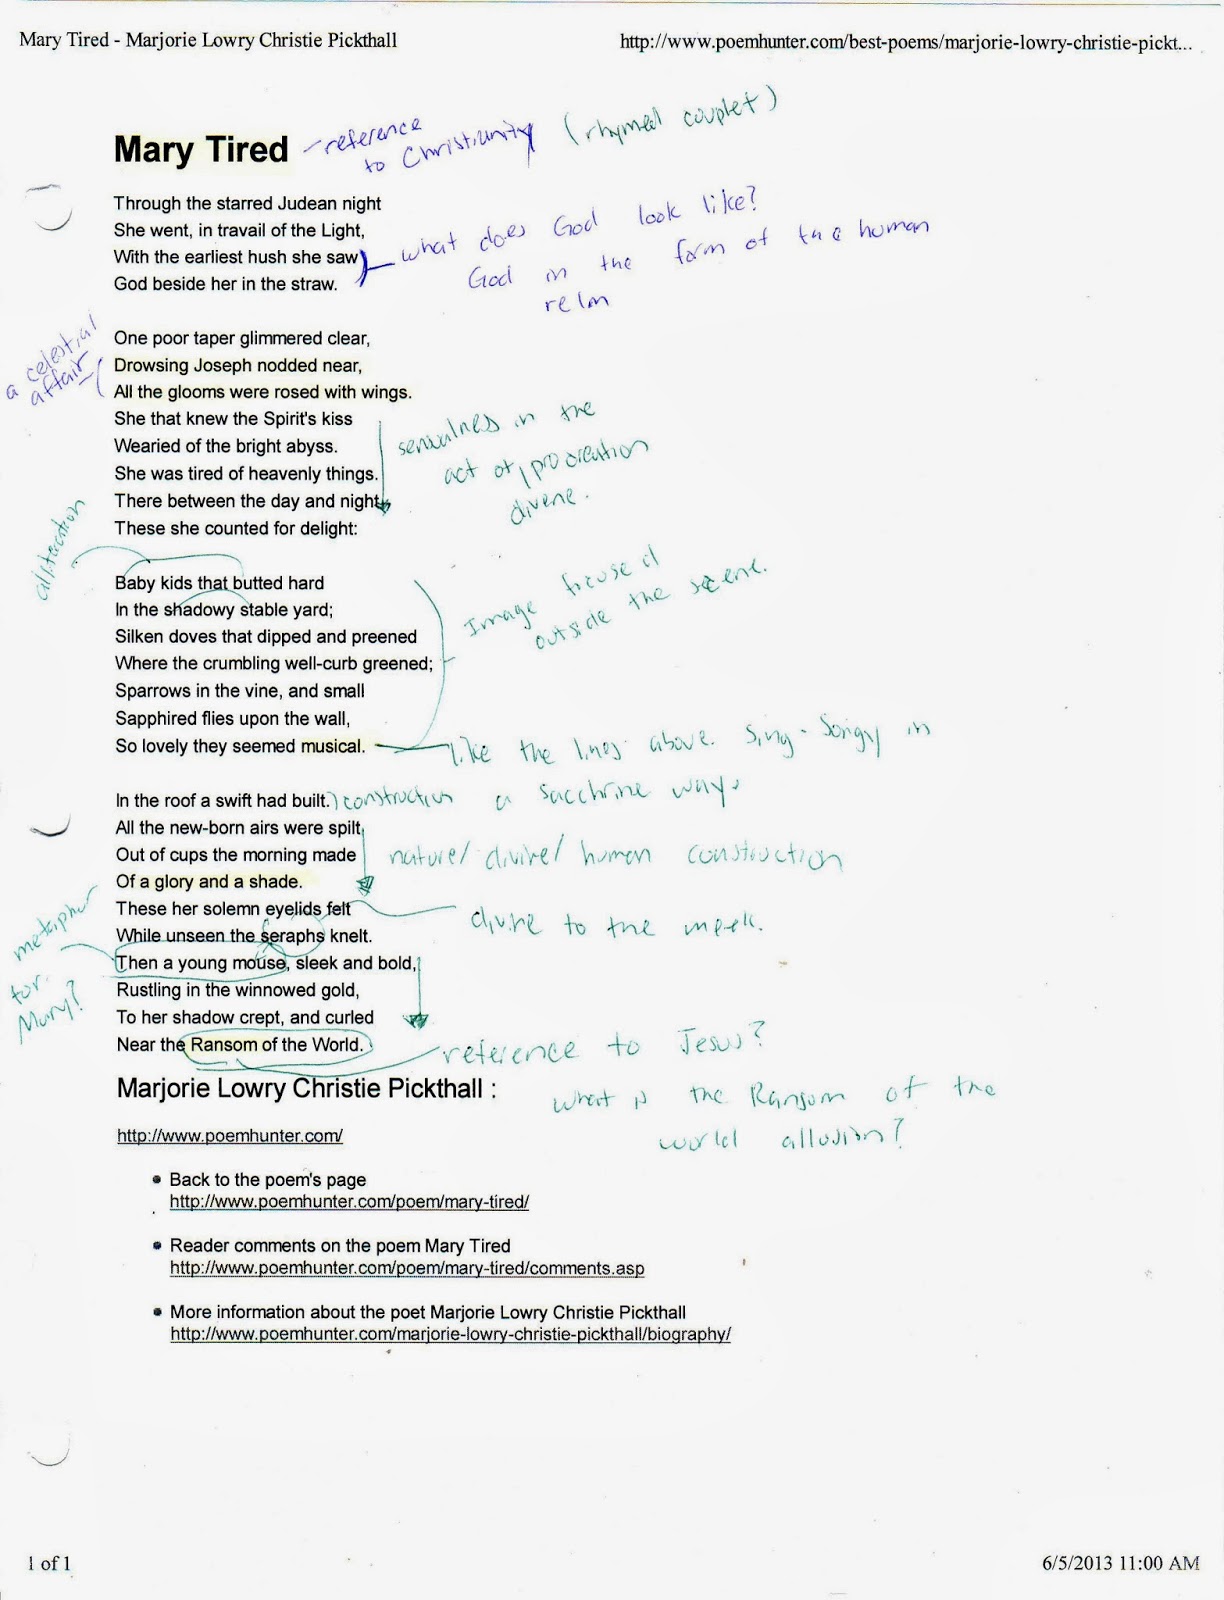 Mary Tired - Marjorie Lowry Christie Pickthall
http://www.poemhunter.com/best-poems/marjorie-lowry-christie-pickt...
Mary Tired
reference
to Christianity
(rhymed couplet)
Through the starred Judean night
She went, in travail of the Light,
With the earliest hush she saw
God beside her in the straw.
what does God look like?
God in the form of the human
relm
One poor taper glimmered clear,
Drowsing Joseph nodded near,
All the glooms were rosed with wings.
a celestial
affair
She that knew the Spirit's kiss
Wearied of the bright abyss.
She was tired of heavenly things.
There between the day and night
These she counted for delight:
in the
act of procreation
divene.
Baby kids that butted hard
In the shadowy stable yard;
Silken doves that dipped and preened
Where the crumbling well-curb greened;
Sparrows in the vine, and small
Sapphired flies upon the wall,
So lovely they seemed musical.
Image
outside the scene.
like the lines above. Sing-Songy in
a sacchrine way.
In the roof a swift had built.
construction
All the new-born airs were spilt
Out of cups the morning made
Of a glory and a shade.
nature/ divine/ human construction
These her solemn eyelids felt
While unseen the seraphs knelt.
divine to the meek.
Then a young mouse, sleek and bold,
Rustling in the winnowed gold,
To her shadow crept, and curled
Near the Ransom of the World.
metaphor
for
Mary?
reference to Jesus?
what is the Ransom of the
world allusion?
Marjorie Lowry Christie Pickthall :
http://www.poemhunter.com/
• Back to the poem's page
http://www.poemhunter.com/poem/mary-tired/
• Reader comments on the poem Mary Tired
http://www.poemhunter.com/poem/mary-tired/comments.asp
• More information about the poet Marjorie Lowry Christie Pickthall
http://www.poemhunter.com/marjorie-lowry-christie-pickthall/biography/
1 of 1
6/5/2013 11:00 AM